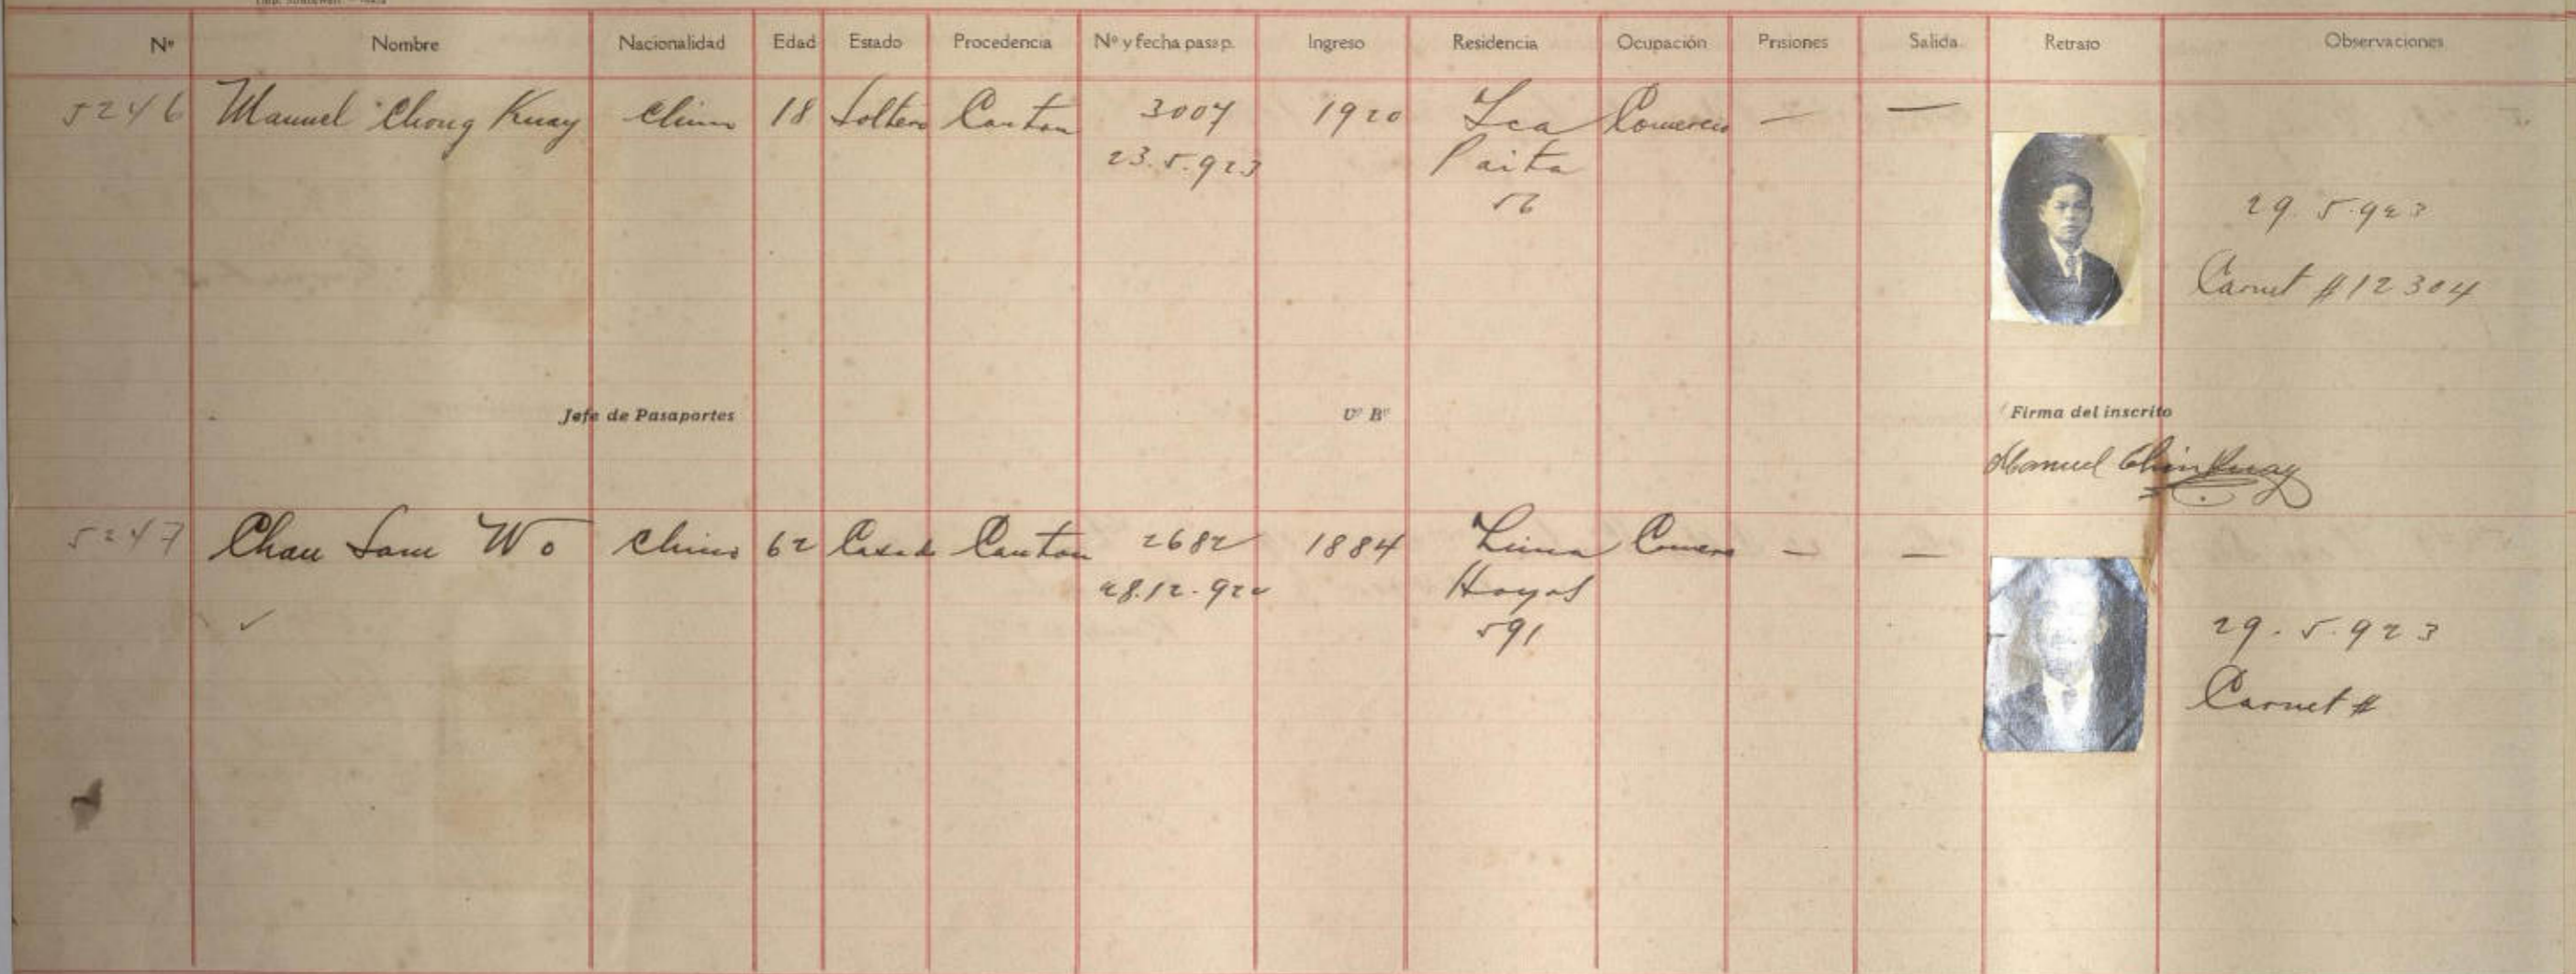 Nº Nombre Nacionalidad Edad Estado Procedencia Nº y fecha pasap. Ingreso Residencia Ocupación Prisiones Salida Retrato Observaciones
5246 Manuel Chong Kuay Chino 18 Soltero Canton 3007 1920 Ica Comercio — —
23.5.923 Paita
56
29.5.923
Carnet #12304
Jefe de Pasaportes Vº Bº Firma del inscrito
Manuel Chin Kuay
5247 Chau Sam Wo Chino 62 Casado Canton 2682 1884 Lima Comercio — —
28.12.920 Hoyos
591
29.5.923
Carnet #